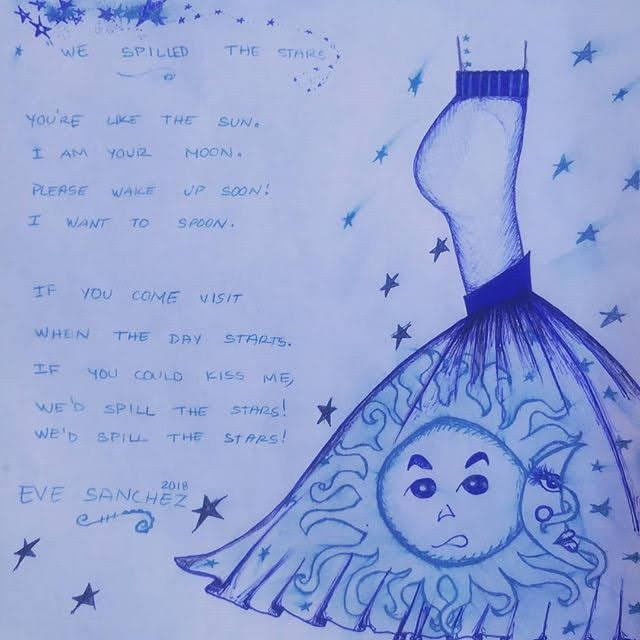 WE SPILLED THE STARS
YOU'RE LIKE THE SUN.
I AM YOUR MOON.
PLEASE WAKE UP SOON!
I WANT TO SPOON.
IF YOU COME VISIT
WHEN THE DAY STARTS.
IF YOU COULD KISS ME,
WE'D SPILL THE STARS!
WE'D SPILL THE STARS!
EVE SANCHEZ 2018